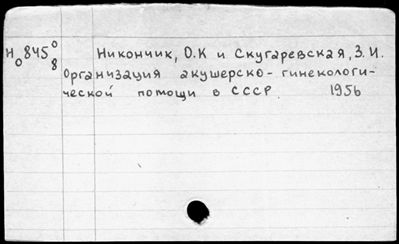 Н О 845 О 8 Никончик, О.К и Скугаревская, З. И.
Организация акушерско-гинекологи-
ческой помощи в СССР 1956